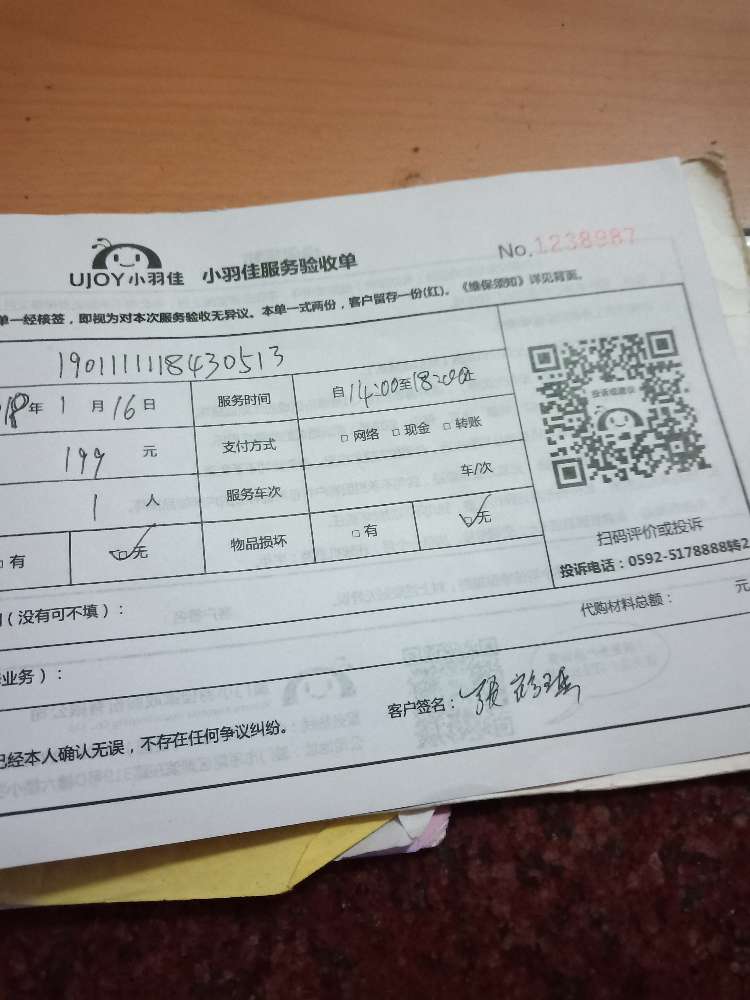 UJOY小羽佳 小羽佳服务验收单 No.1238987
单一经核签，即视为对本次服务验收无异议。本单一式两份，客户留存一份(红)。《维保须知》详见背面。
1901111118430513
年 1 月 16 日 服务时间 自14:00至18:00止
199 元 支付方式 □ 网络 □ 现金 □ 转账
1 人 服务车次 车/次
□有 □无 物品损坏 □有 □无
投诉或建议
扫码评价或投诉
投诉电话：0592-5178888转2
（没有可不填）： 代购材料总额： 元
业务）：
已经本人确认无误，不存在任何争议纠纷。 客户签名：张